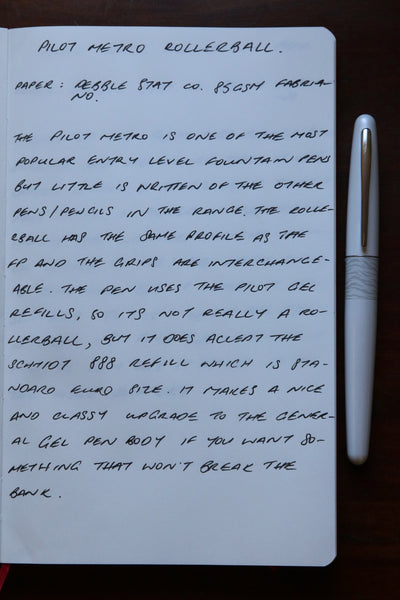 PILOT METRO ROLLERBALL.
PAPER: PEBBLE STAT CO. 85GSM FABRIA-
NO.
THE PILOT METRO IS ONE OF THE MOST
POPULAR ENTRY LEVEL FOUNTAIN PENS
BUT LITTLE IS WRITTEN OF THE OTHER
PENS/PENCILS IN THE RANGE. THE ROLLE-
RBALL HAS THE SAME PROFILE AS THE
FP AND THE GRIPS ARE INTERCHANGE-
ABLE. THE PEN USES THE PILOT GEL
REFILLS, SO ITS NOT REALLY A RO-
LLERBALL, BUT IT DOES ACCEPT THE
SCHMIDT 888 REFILL WHICH IS STA-
NDARD EURO SIZE. IT MAKES A NICE
AND CLASSY UPGRADE TO THE GENER-
AL GEL PEN BODY IF YOU WANT SO-
METHING THAT WON'T BREAK THE
BANK.